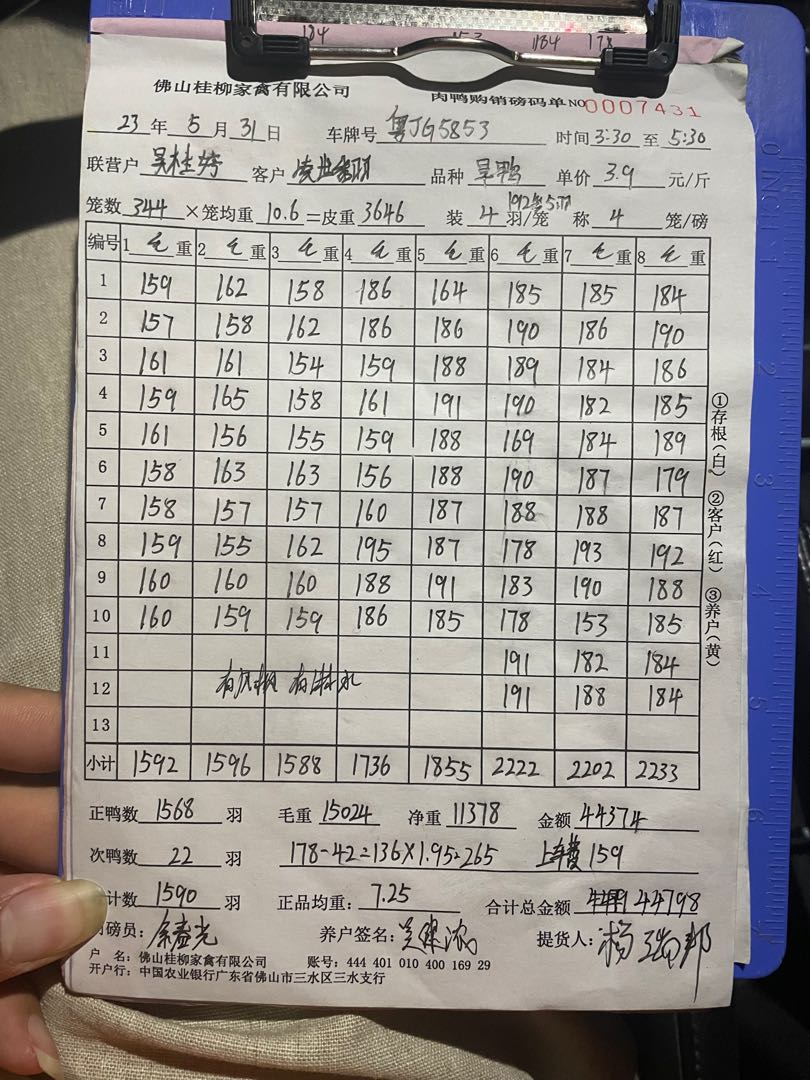 184 153 184 178
佛山桂柳家禽有限公司 肉鸭购销磅码单 NO 0007431
23 年 5 月 31 日 车牌号 粤JG5853 时间 3:30 至 5:30
联营户 吴桂 客户 品种 旱鸭 单价 3.9 元/斤
笼数 344 ×笼均重 10.6 =皮重 3646 装 4 羽/笼 称 4 笼/磅
编号 1 毛 重 2 毛 重 3 毛 重 4 毛 重 5 毛 重 6 毛 重 7 毛 重 8 毛 重
1 159 162 158 186 164 185 185 184
2 157 158 162 186 186 190 186 190
3 161 161 154 159 188 189 184 186
4 159 165 158 161 191 190 182 185
5 161 156 155 159 188 169 184 189
6 158 163 163 156 188 190 187 179
7 158 157 157 160 187 188 188 187
8 159 155 162 195 187 178 193 192
9 160 160 160 188 191 183 190 188
10 160 159 159 186 185 178 153 185
11 191 182 184
12 有风机 有淋水 191 188 184
13
小计 1592 1596 1588 1736 1855 2222 2202 2233
①存根(白) ②客户(红) ③养户(黄)
正鸭数 1568 羽 毛重 15024 净重 11378 金额 44374
次鸭数 22 羽 178-42=136×1.95=265 上车费 159
计数 1590 羽 正品均重: 7.25 合计总金额 44798
磅员: 养户签名: 提货人:
户 名: 佛山桂柳家禽有限公司 账号: 444 401 010 400 169 29
开户行: 中国农业银行广东省佛山市三水区三水支行